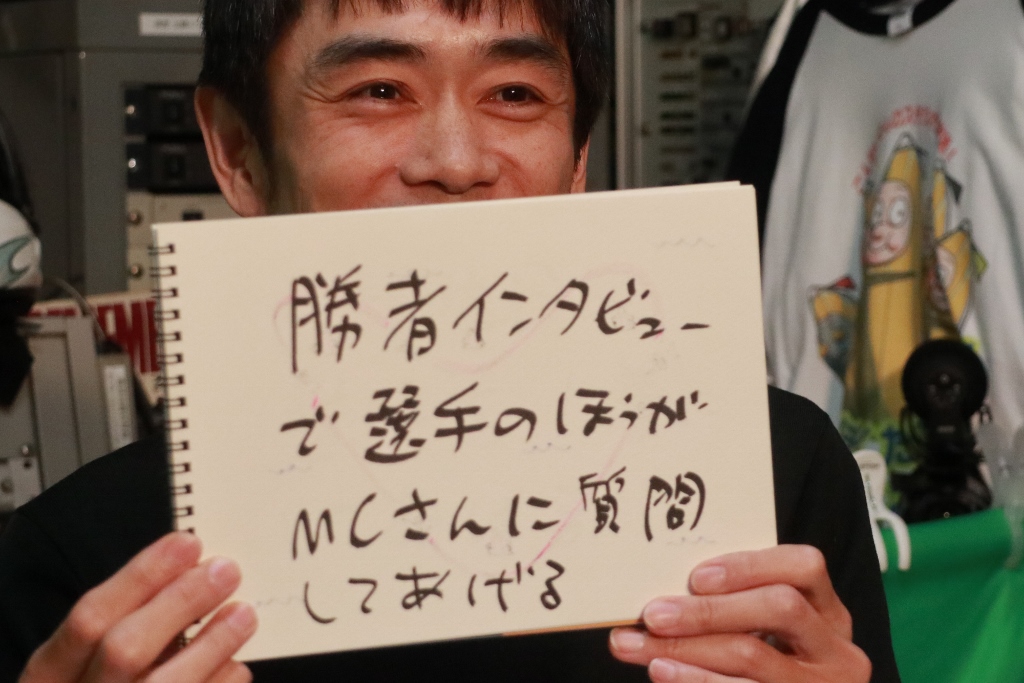 勝者インタビュー
で選手のほうが
MCさんに質問
してあげる